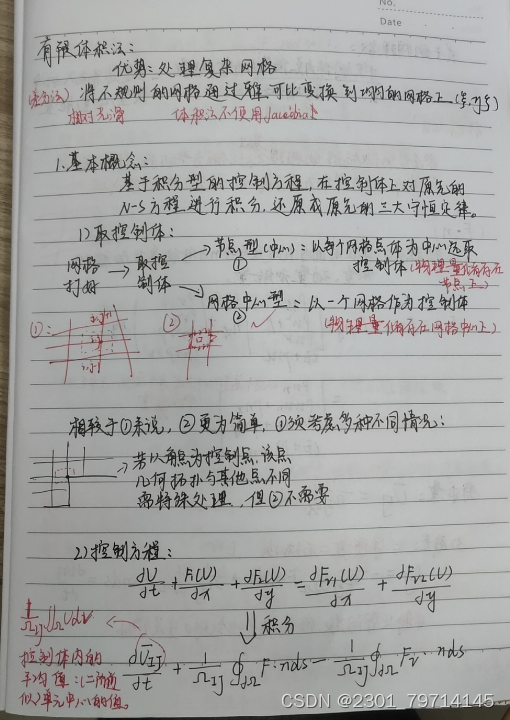 No.
Date
有限体积法：
优势：处理复杂网格
(差分法) 将不规则的网格通过雅可比变换到均匀的网格上 (ξ,η)
相对光滑 体积法不使用Jacobi
1.基本概念：
基于积分型的控制方程，在控制体上对原先的
N-S方程进行积分，还原成原先的三大守恒定律。
1)取控制体：
网格打好 → 取控制体
→ 节点型(中心)：以每个网格点体为中心选取控制体(物理量储存在节点上)
①
→ 网格中心型：以一个网格作为控制体
② (物理量储存在网格中心上)
①： ②
相较于①来说，②更为简单，①须考虑多种不同情况：
→ 若以角点为控制点，该点
几何拓扑与其他点不同
需特殊处理，但②不需要
2)控制方程：
∂U/∂t + ∂F₁(U)/∂x + ∂F₂(U)/∂y = ∂Fv₁(U)/∂x + ∂Fv₂(U)/∂y
⇓ 积分
1/Ω_IJ ∫_Ω U dv
控制体内的
平均值：(二阶近
似)单元中心的值。
∂Ū_IJ/∂t + 1/Ω_IJ ∮_∂Ω F·n ds − 1/Ω_IJ ∮_∂Ω Fv·n ds
CSDN @2301_79714145